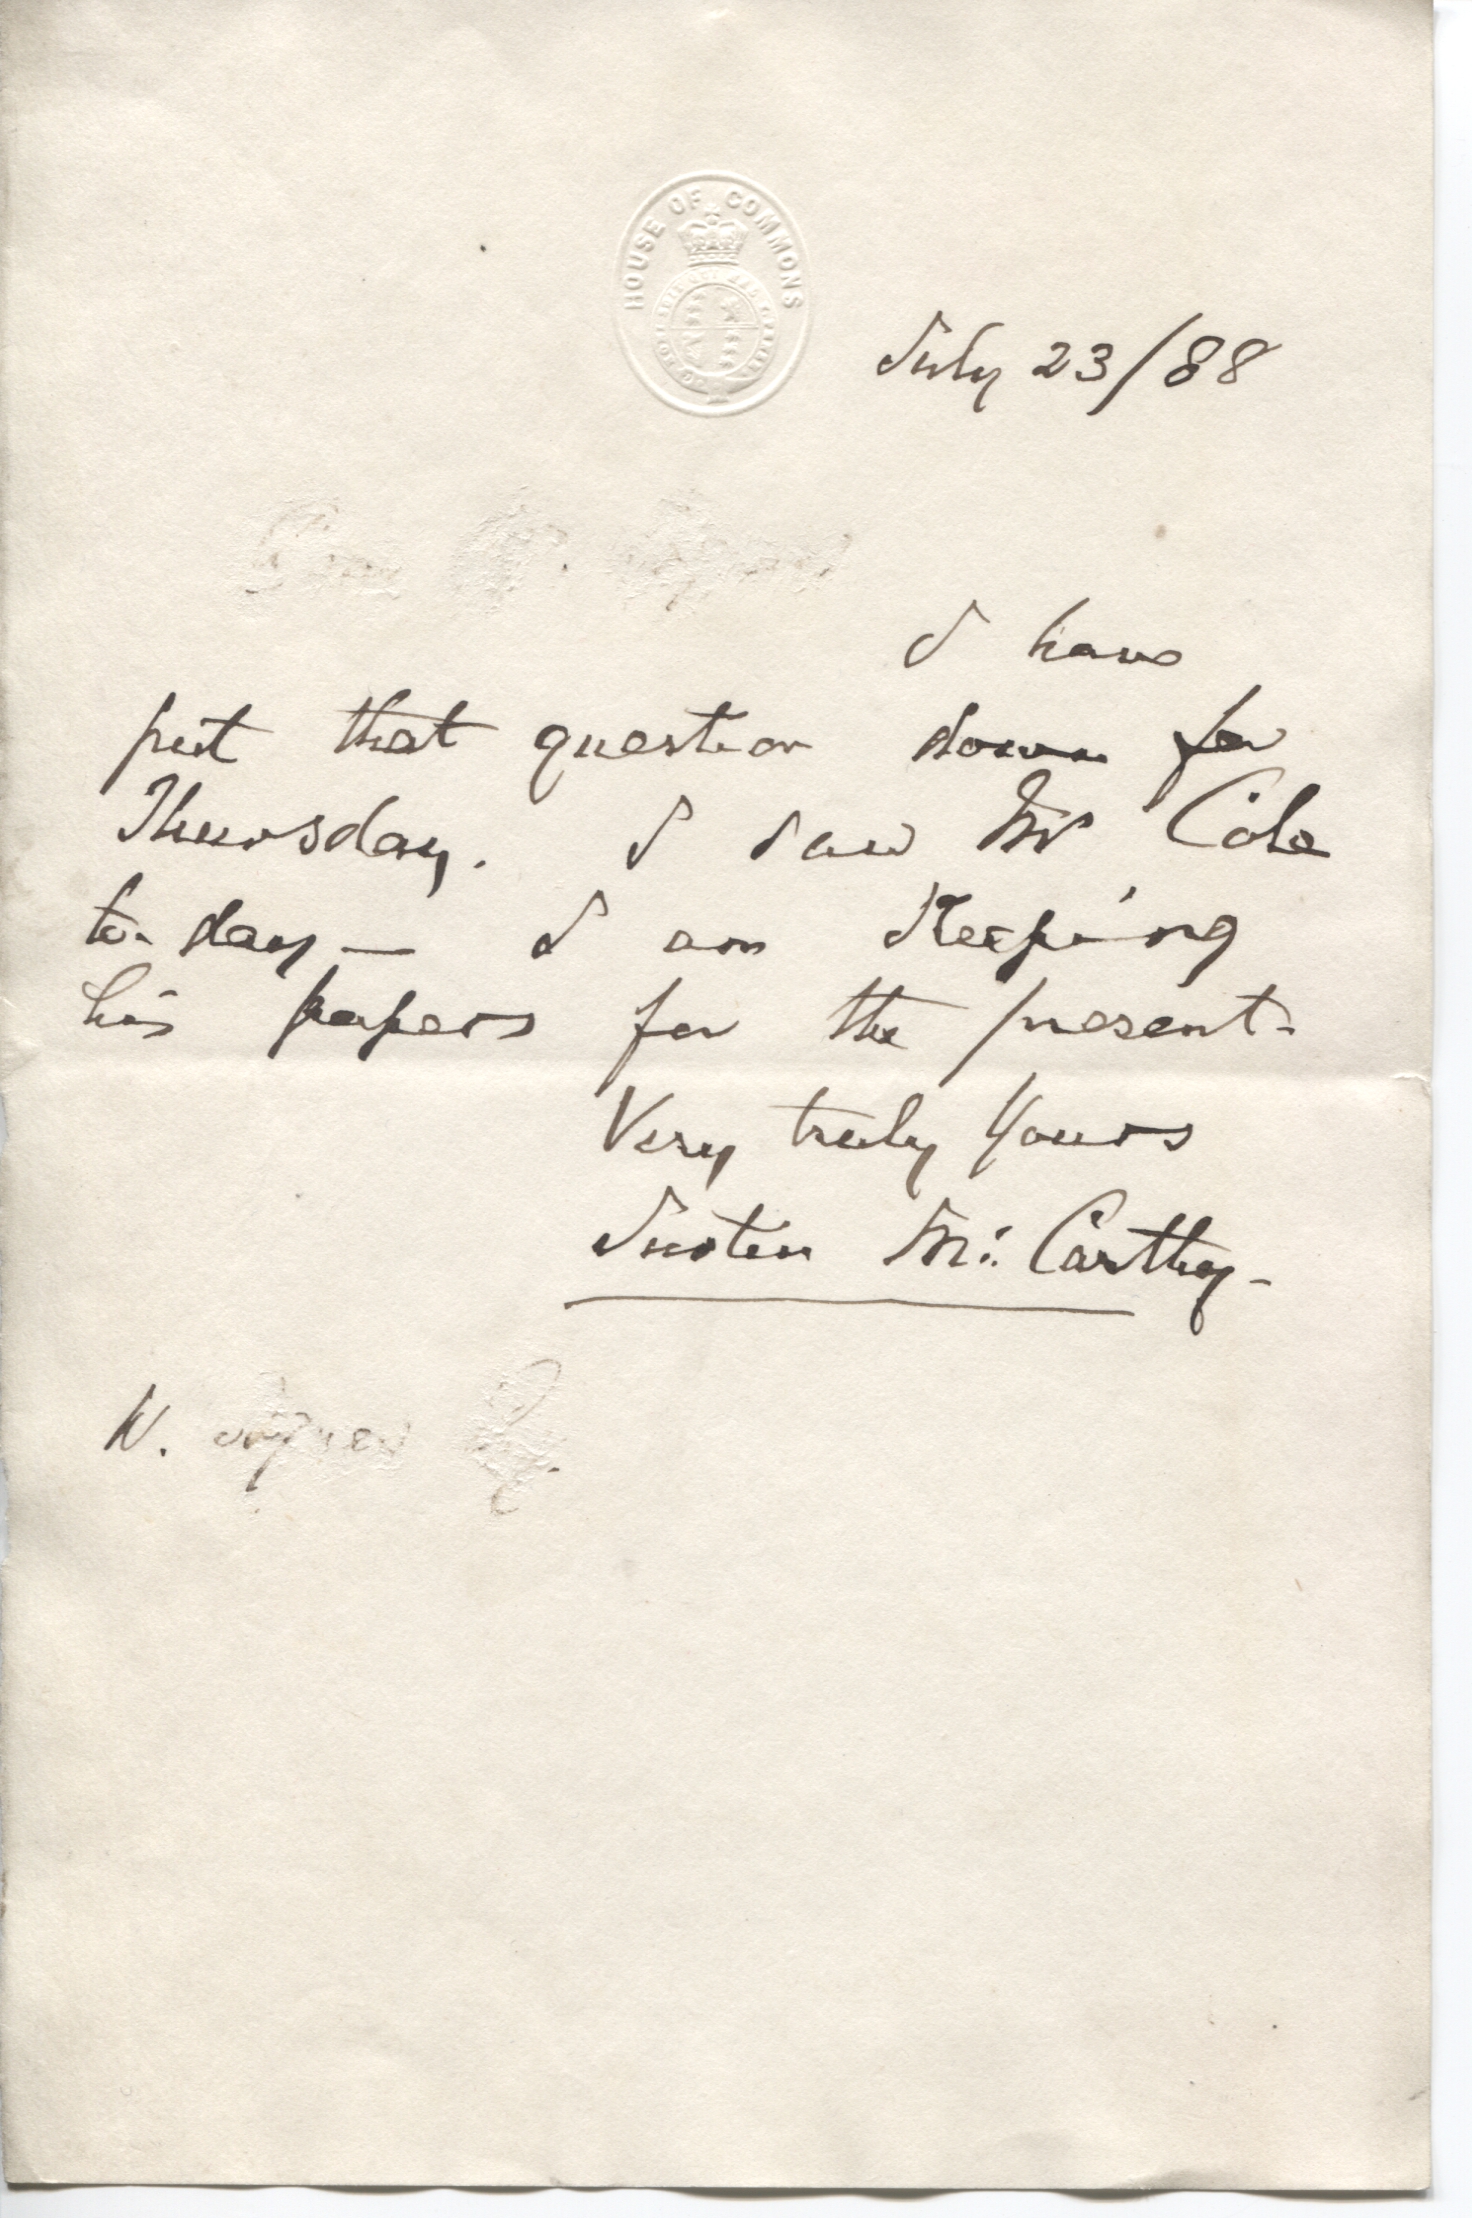 HOUSE OF COMMONS
July 23/88
I have
put that question down for
Thursday. I saw Mr Cole
to-day — I am keeping
his papers for the present-
Very truly yours
Justin McCarthy-
W.